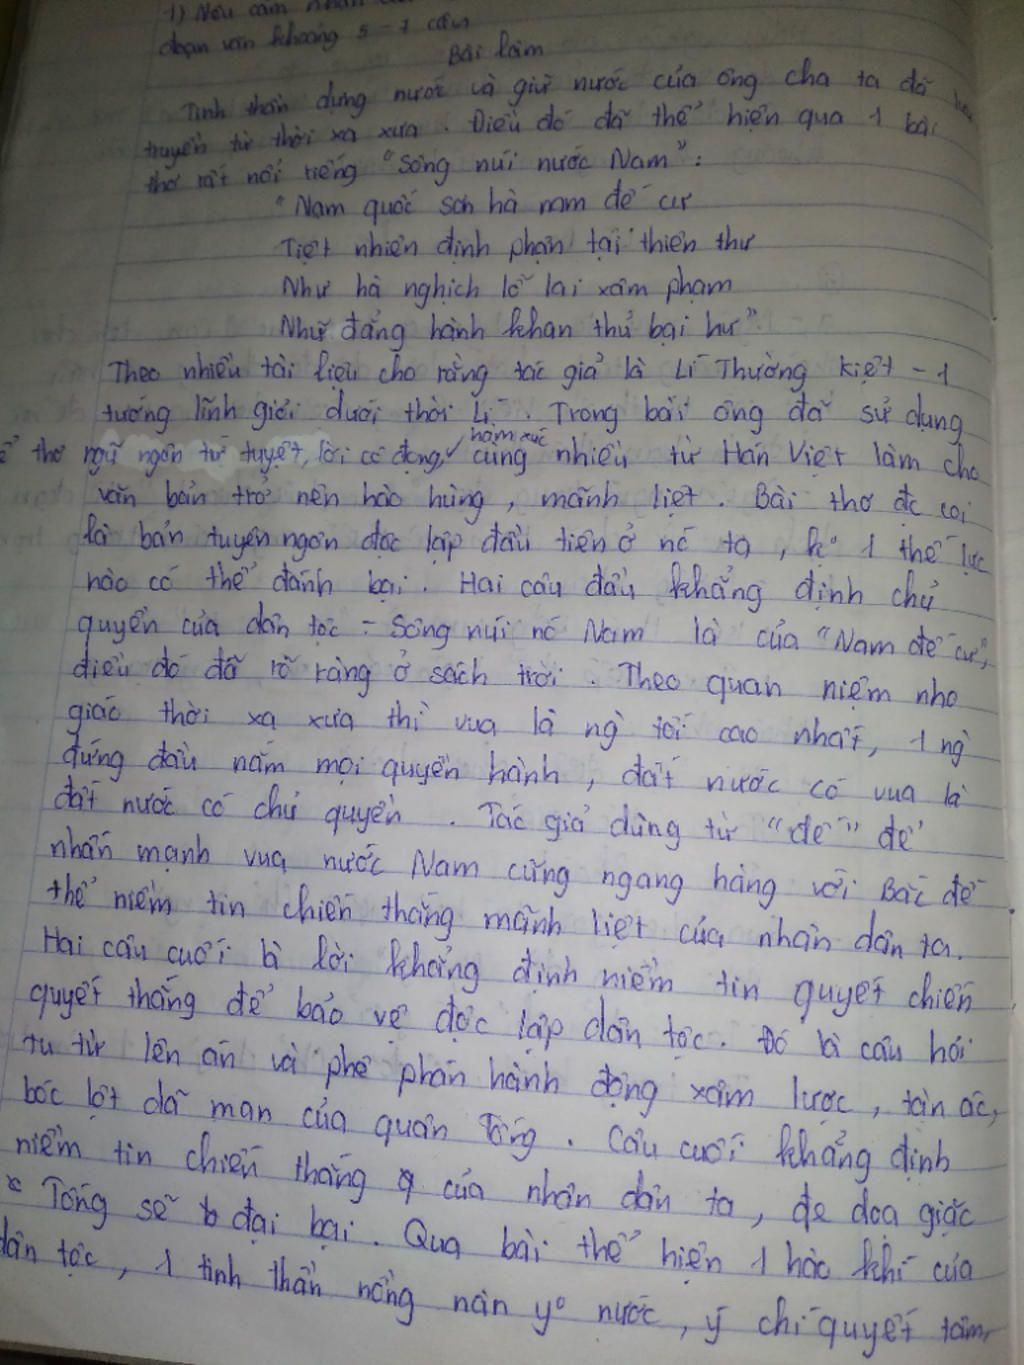 1) Nêu cảm nhận
đoạn văn khoảng 5 - 7 câu
Bài làm
Tinh thần dựng nước và giữ nước của ông cha ta đã
truyền từ thời xa xưa. Điều đó đã thể hiện qua 1 bài
thơ rất nổi tiếng "Sông núi nước Nam":
"Nam quốc sơn hà nam đế cư
Tiệt nhiên định phận tại thiên thư
Như hà nghịch lỗ lai xâm phạm
Nhữ đẳng hành khan thủ bại hư".
Theo nhiều tài liệu cho rằng tác giả là Lí Thường Kiệt - 1
tướng lĩnh giỏi dưới thời Lí. Trong bài ông đã sử dụng
thơ ngũ ngôn tứ tuyệt, lời cô đọng, hàm xúc cùng nhiều từ Hán Việt làm cho
văn bản trở nên hào hùng, mãnh liệt. Bài thơ đc coi
là bản tuyên ngôn độc lập đầu tiên ở nc ta, ko 1 thế lực
nào có thể đánh bại. Hai câu đầu khẳng định chủ
quyền của dân tộc - Sông núi nc Nam là của "Nam đế cư",
điều đó đã rõ ràng ở sách trời. Theo quan niệm nho
giáo thời xa xưa thì vua là ng tối cao nhất, 1 ng
đứng đầu nắm mọi quyền hành, đất nước có vua là
đất nước có chủ quyền. Tác giả dùng từ "đế" để
nhấn mạnh vua nước Nam cũng ngang hàng với Bắc đế
thể niềm tin chiến thắng mãnh liệt của nhân dân ta.
Hai câu cuối là lời khẳng định niềm tin quyết chiến
quyết thắng để bảo vệ độc lập dân tộc. Đó là câu hỏi
tu từ lên án và phê phán hành động xâm lược, tàn ác,
bóc lột dã man của quân Tống. Câu cuối khẳng định
niềm tin chiến thắng của nhân dân ta, đe doạ giặc
Tống sẽ b đại bại. Qua bài thể hiện 1 hào khí của
dân tộc, 1 tinh thần nồng nàn yo nước, ý chí quyết tâm,